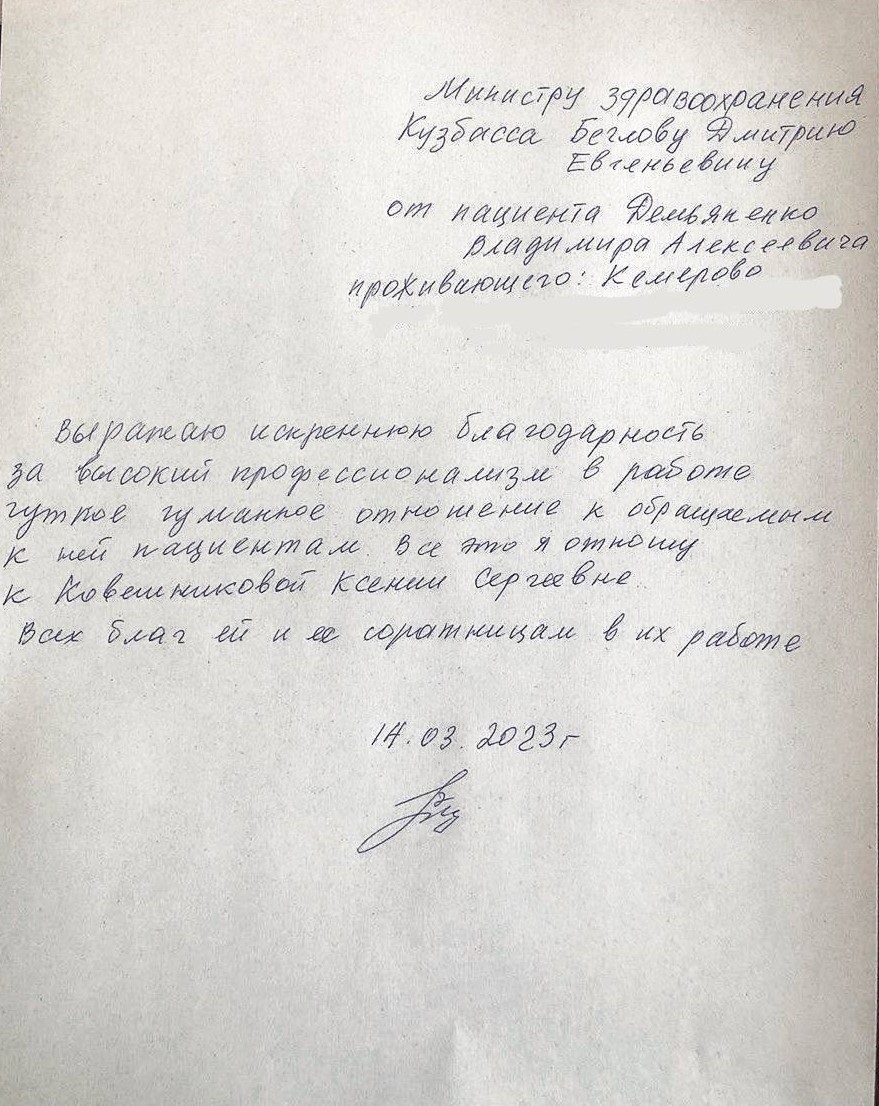 Министру здравоохранения
Кузбасса Беглову Дмитрию
Евгеньевичу
от пациента Демьяненко
Владимира Алексеевича
проживающего: Кемерово
Выражаю искреннюю благодарность
за высокий профессионализм в работе
чуткое гуманное отношение к обращаемым
к ней пациентам. Все это я отношу
к Ковешниковой Ксении Сергеевне.
Всех благ ей и ее соратницам в их работе
14.03.2023г